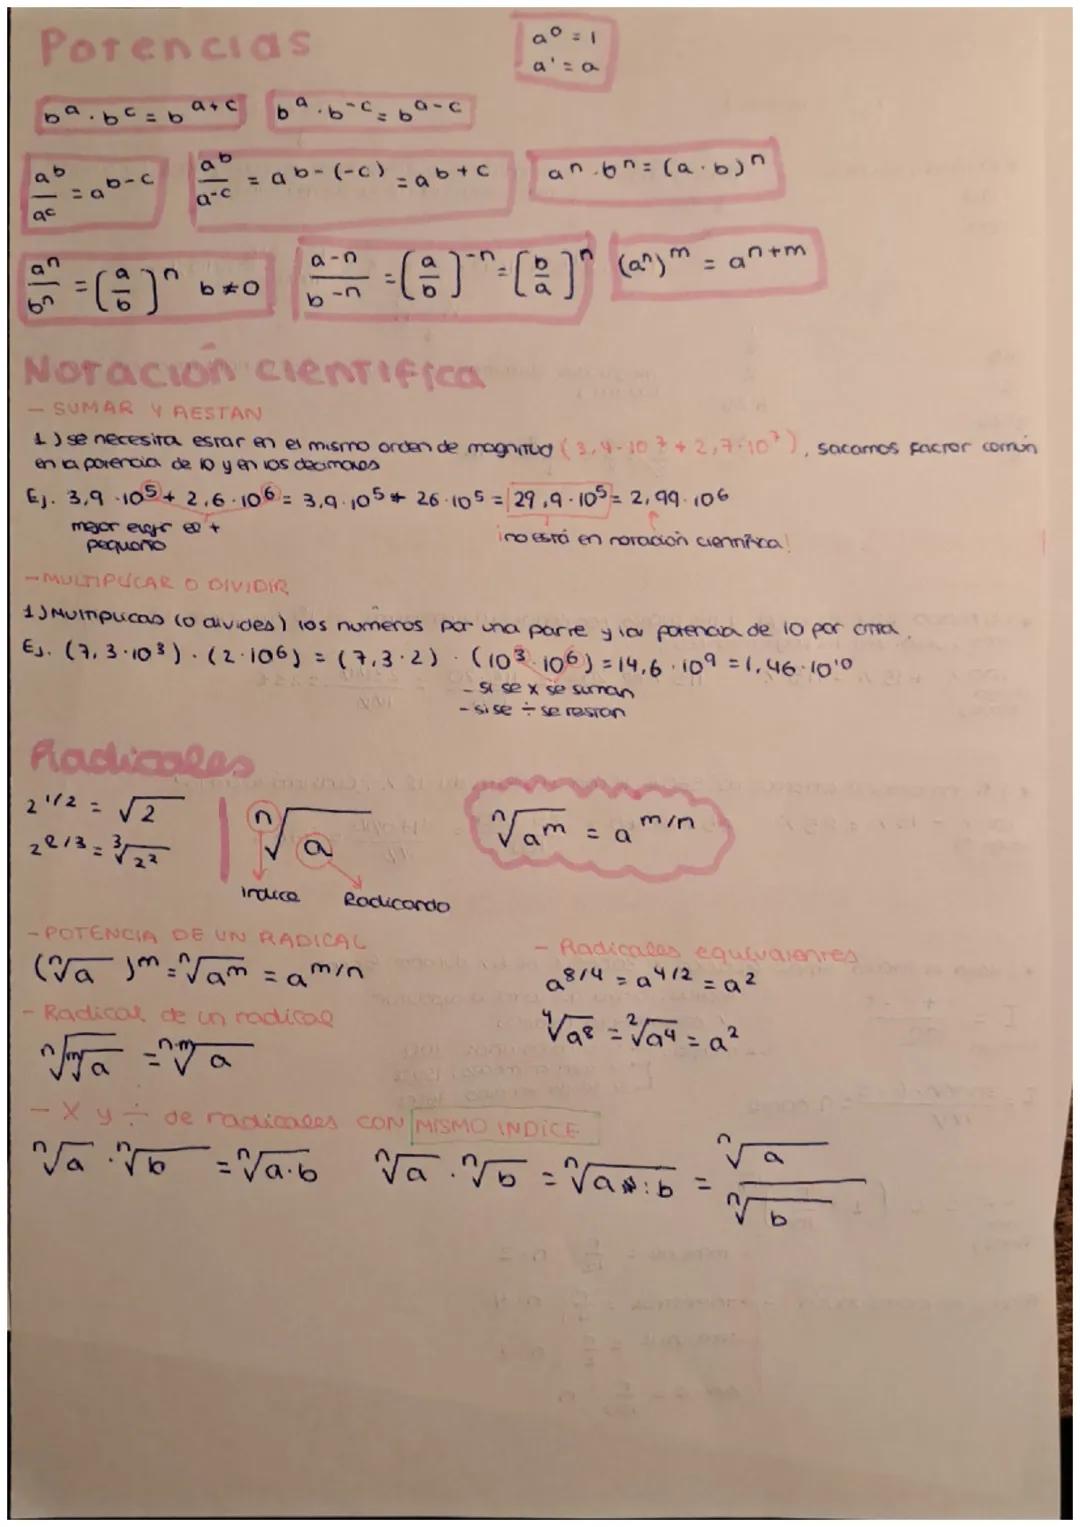 Potencias
a⁰ = 1
a¹ = a
bᵃ · bᶜ = bᵃ⁺ᶜ   bᵃ · b⁻ᶜ = bᵃ⁻ᶜ
aᵇ/aᶜ = aᵇ⁻ᶜ   aᵇ/a⁻ᶜ = aᵇ⁻⁽⁻ᶜ⁾ = aᵇ⁺ᶜ   aⁿ · bⁿ = (a · b)ⁿ
aⁿ/bⁿ = (a/b)ⁿ b≠0   a⁻ⁿ/b⁻ⁿ = (a/b)⁻ⁿ = (b/a)ⁿ   (aⁿ)ᵐ = aⁿ⁺ᵐ
Notación científica
- SUMAR Y RESTAN
1) se necesita estar en el mismo orden de magnitud (3,4·10⁷ + 2,7·10⁷), sacamos factor común
en la potencia de 10 y en los decimales
Ej. 3,9 · 10⁵ + 2,6 · 10⁶ = 3,9 · 10⁵ + 26 · 10⁵ = 29,9 · 10⁵ = 2,99 · 10⁶
mejor elegir el +
pequeño
¡no está en notación científica!
- MULTIPLICAR O DIVIDIR
1) Multiplicas (o divides) los números por una parte y la potencia de 10 por otra.
Ej. (7,3 · 10³) · (2 · 10⁶) = (7,3 · 2) · (10³ · 10⁶) = 14,6 · 10⁹ = 1,46 · 10¹⁰
- si se x se suman
- si se ÷ se restan
Radicales
2^1/2 = √2
2^2/3 = ³√2²
ⁿ√a
Indice   Radicando
ⁿ√aᵐ = a^m/n
- POTENCIA DE UN RADICAL
(ⁿ√a)ᵐ = ⁿ√aᵐ = a^m/n
- Radicales equivalentes
a^8/4 = a^4/2 = a²
⁴√a⁸ = ²√a⁴ = a²
- Radical de un radical
ⁿ√ᵐ√a = ⁿ·ᵐ√a
- X y ÷ de radicales CON MISMO INDICE
ⁿ√a · ⁿ√b = ⁿ√a·b   ⁿ√a · ⁿ√b = ⁿ√a:b = ⁿ√a/ⁿ√b